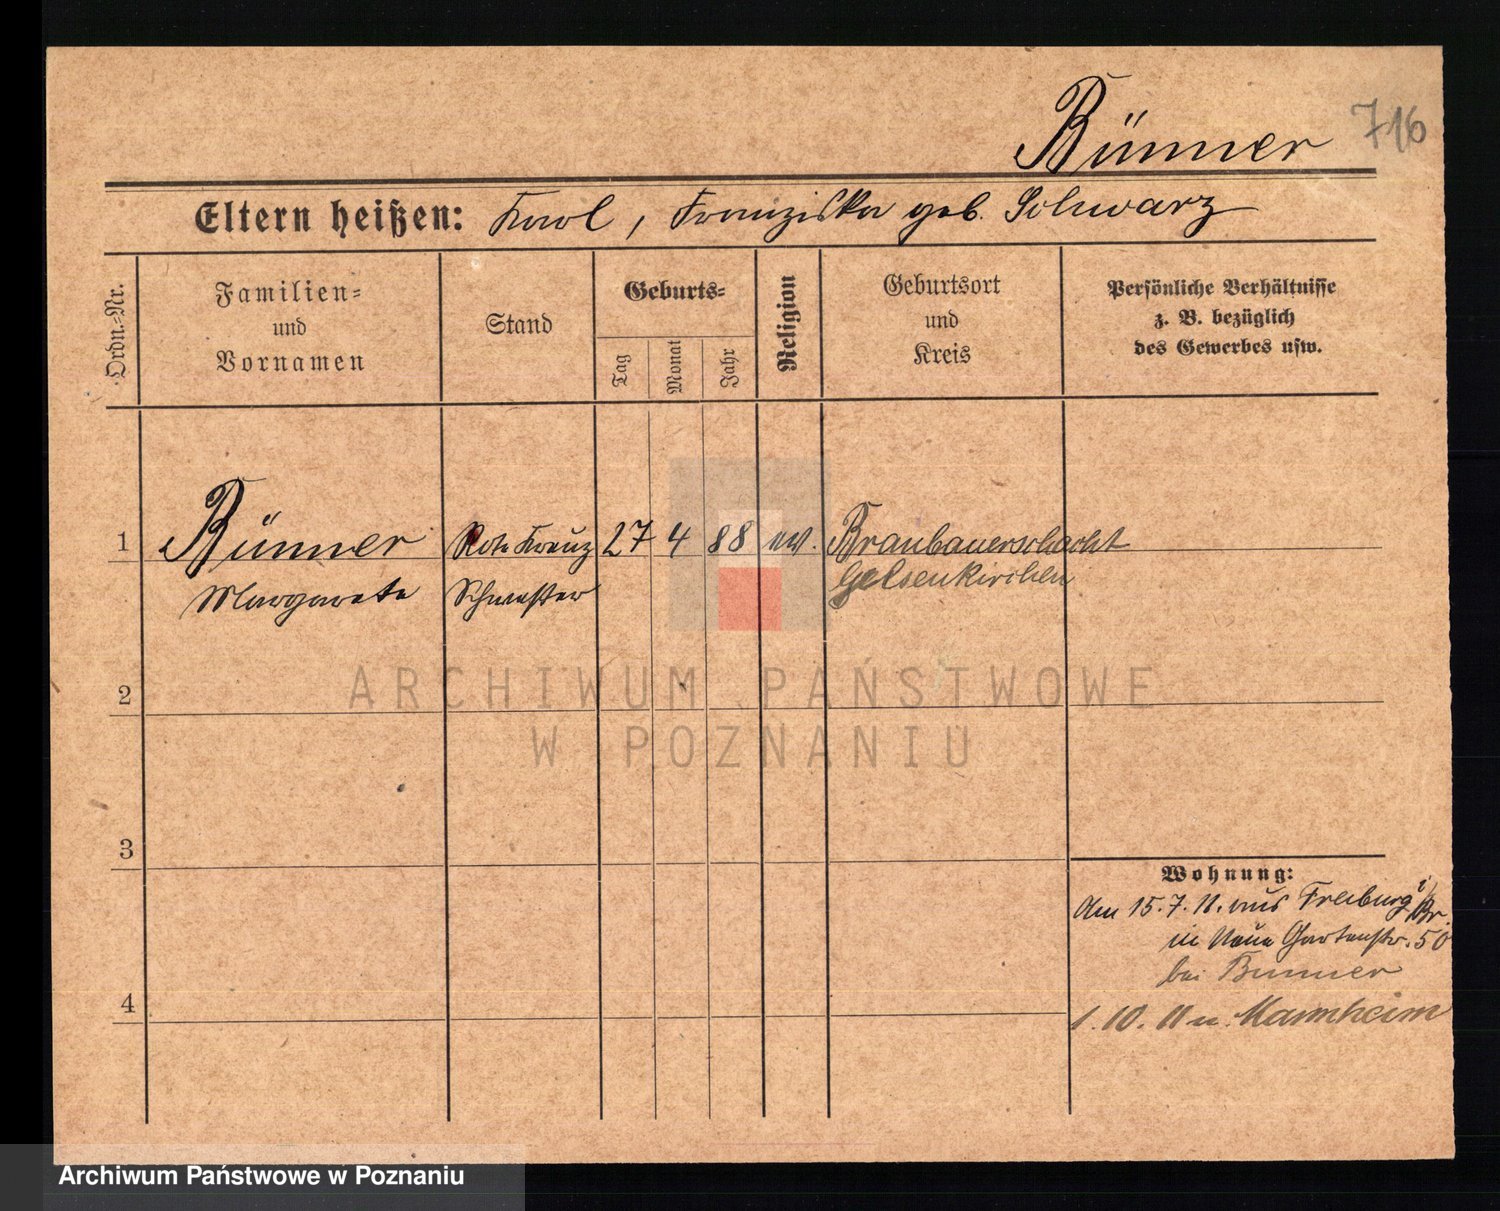 Bünner 716
Eltern heißen: Karl, Franziska geb. Schwarz
Ordn.-Nr.
Familien-
und
Vornamen
Stand
Geburts-
Tag
Monat
Jahr
Religion
Geburtsort
und
Kreis
Persönliche Verhältnisse
z. B. bezüglich
des Gewerbes usw.
1 Bünner Rote Kreuz 27 4 88 ev. Braubauerschacht
Margarete Schwester Gelsenkirchen
ARCHIWUM PAŃSTWOWE
W POZNANIU
2
3
4
Wohnung:
am 15.7.11. aus Freiburg i/Br.
in Neue Gartenstr. 50
bei Bünner
1.10.11 n. Mannheim
Archiwum Państwowe w Poznaniu